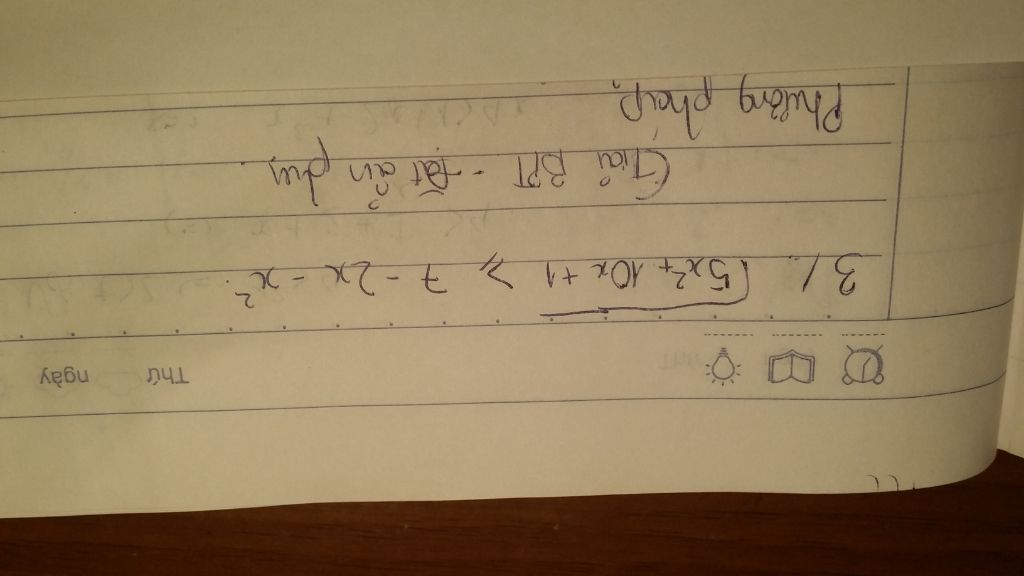 Thứ ngày
3/. √5x²+10x+1 ≥ 7 - 2x - x².
Giải BPT - Đặt ẩn phụ.
Phương pháp.